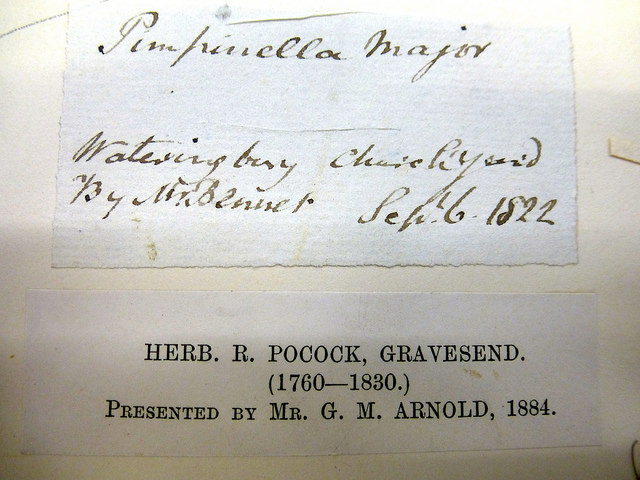 Pimpinella Major
Wateringbury Church Yard
By Mr. Bennet Sept. 6. 1822
HERB. R. POCOCK, GRAVESEND.
(1760—1830.)
PRESENTED BY MR. G. M. ARNOLD, 1884.